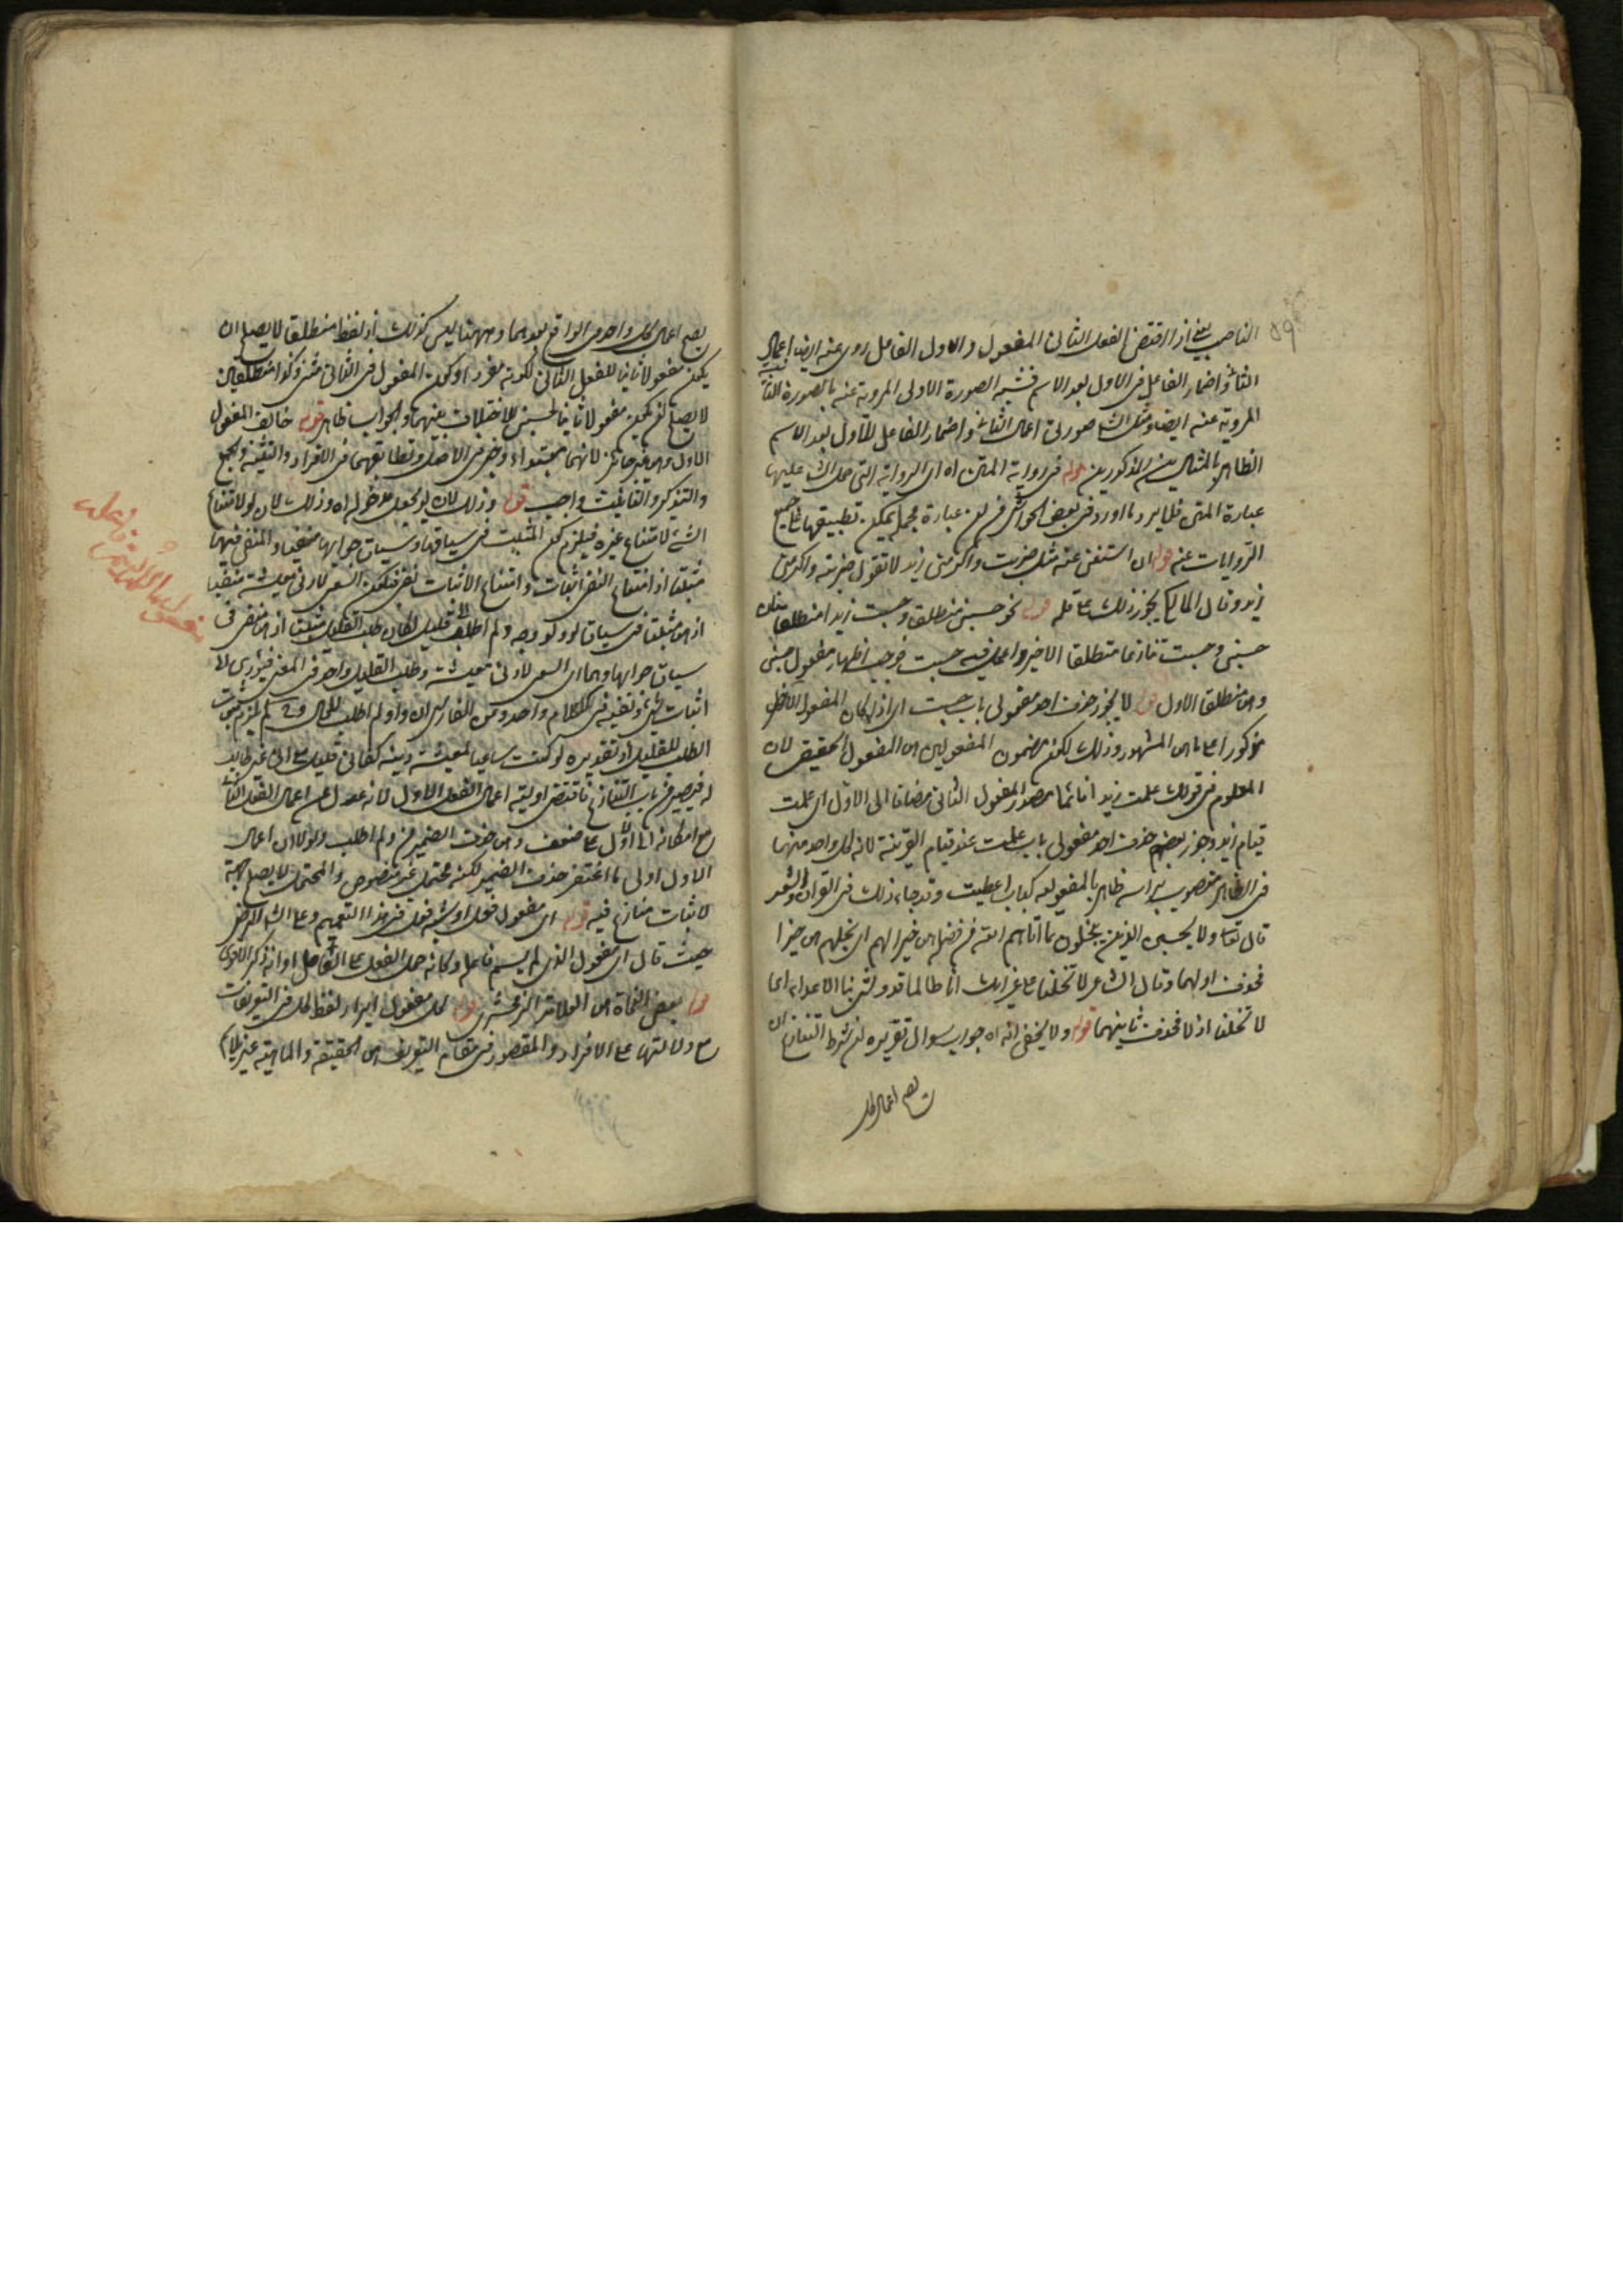 ٥٩
الناصب يعني اذا اقتضى الفعل الثاني المفعول والاول الفاعل روى عنه ايضا اعمال
الثاني واضمار الفاعل في الاول بعد الاسم فشبه الصورة الاولى المروية عنه بالصورة الثانية
المروية عنه ايضا ومثل صورتي اعمال الثاني واضمار الفاعل للاول بعد الاسم
الظاهر بالمثالين المذكورين قوله في رواية المتن اه اي الرواية التي حمل الشـ عليها
عبارة المتن فلا يرد ما اورد في بعض الحواشي من ان عبارة مجمل يمكن تطبيقها على جميع
الروايات عنه قوله ان استغنى عنه مثل ضربت واكرمني زيد لا تقول ضربته واكرمني
زيد وقال المالكي يجوز ذلك على قلة قوله نحو حسبني منطلقا وحسبت زيدا منطلقا فان
حسبني وحسبت تنازعا منطلقا الاخير واعمل فيه حسبت فوجب اظهار مفعول حسبني
وهو منطلقا الاول قوله لا يجوز حذف احد مفعولي باب حسبت اي اذا كان المفعول الاخر
مذكورا على ما هو المشهور وذلك لكون مضمون المفعولين هو المفعول الحقيقي لان
المعلوم في قولك علمت زيدا قائما مصدر المفعول الثاني مضافا الى الاول اي علمت
قيام زيد وجوز بعضهم حذف احد مفعولي باب علمت عند قيام القرينة لان كل واحد منهما
في الظاهر منصوب برأسه ظاهر بالمفعولية كباب اعطيت وقد جاء ذلك في القرآن والشعر
قال تعا ولا يحسبن الذين يبخلون بما آتاهم الله من فضله هو خيرا لهم اي بخلهم هو خيرا
فحذف اولهما وقال الشاعر لا تخلنا على غراتك انا طالما قد وشى بنا الاعداء اي
لا تخلنا اذلاء فحذف ثانيهما قوله ولا يخفى انه اه جواب سؤال تقريره ان شرط التنازع ان
يصح اعمال كل
يصح اعمال كل واحد في الواقع بعدهما وههنا ليس كذلك اذ لفظ منطلقا لا يصلح ان
يكون مفعولا ثانيا للفعل الثاني لكونه مفردا وكون المفعول في الثاني مثنى وكذا منطلقين
لا يصلح ان يكون مفعولا ثانيا لحسبني للاختلاف بينهما والجواب ظاهر قوله خالف المفعول
الاول وهو غير جائز لانهما مبتدأ وخبر في الاصل وتطابقهما في الافراد والتثنية والجمع
والتذكير والتأنيث واجب قوله وذلك لان لو يجعل مدخوله اه وذلك لان لو لامتناع
الشئ لامتناع غيره فيلزم كون المثبت في سياقها وسياق جوابها منفيا والمنفي فيهما
مثبتا اذ امتناع النفي اثبات وامتناع الاثبات نفي فيكون السعي لادنى معيشة منفيا
اذ هو مثبت في سياق لو ولو وجه ولم اطلب قليل لكان طلب القليل مثبتا اذ هو منفي في
سياق جوابها وهما اي السعي لادنى معيشة وطلب القليل واحد في المعنى فيؤدي الى
اثبات شئ ونفيه في كلام واحد
الطلب للقليل اذ تقديره لو كنت ساعيا لمعيشة دنية كفاني قليل من المال غير طالب
له فيصير من باب التنازع فاقتضى اولية اعمال الفعل الاول لانه عدل عن اعمال الفعل الثاني
مع امكانه الى الاول على ضعف وهو حذف الضمير من ولم اطلب ولولا ان اعمال
الاول اولى ما اغتفر حذف الضمير لكنه محتمل غير منصوص والمحتمل لا يصلح حجة
لاثبات متنازع فيه قوله اي مفعول فعل او شبه فعل في هذا التعميم وعلى الرضي
حيث قال اي مفعول الذي لم يسم فاعله وكأنه حمل الفعل على الفاعل او انه ذكر الاقوى
قوله بعض النحاة هو العلامة الزمخشري قوله كل مفعول ايراد لفظ كل في التعريفات
مع دلالتها على الافراد والمقصود في مقام التعريف هو الحقيقة والماهية غير ملائم
مفعول ما لم يسم فاعله